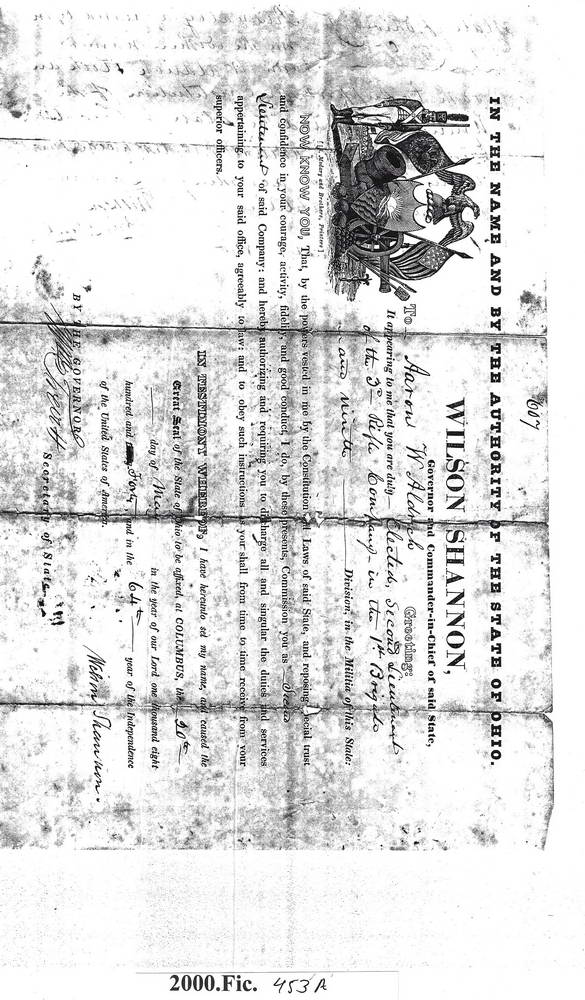 1007
IN THE NAME AND BY THE AUTHORITY OF THE STATE OF OHIO.
WILSON SHANNON,
Governor and Commander-in-Chief of said State,
To Aaron W Aldrich Greeting:
It appearing to me that you are duly Elected, Second Lieutenant
of the 3rd Rifle Company in the 1st Brigade
and Ninth Division, in the Militia of this State:
[Medary and Brothers, Printers]
NOW KNOW YOU, That, by the powers vested in me by the Constitution and Laws of said State, and reposing special trust
and confidence in your courage, activity, fidelity, and good conduct, I do, by these presents, Commission you as Second
Lieutenant of said Company: and hereby authorizing and requiring you to discharge all and singular the duties and services
appertaining to your said office, agreeably to law: and to obey such instructions as you shall from time to time receive from your
superior officers.
IN TESTIMONY WHEREOF, I have hereunto set my name, and caused the
Great Seal of the State of Ohio to be affixed, at COLUMBUS, the 20th
day of May in the year of our Lord one thousand eight
hundred and forty, and in the 64th year of the Independence
of the United States of America.
Wilson Shannon.
BY THE GOVERNOR
Secretary of State
2000.Fic. 453A